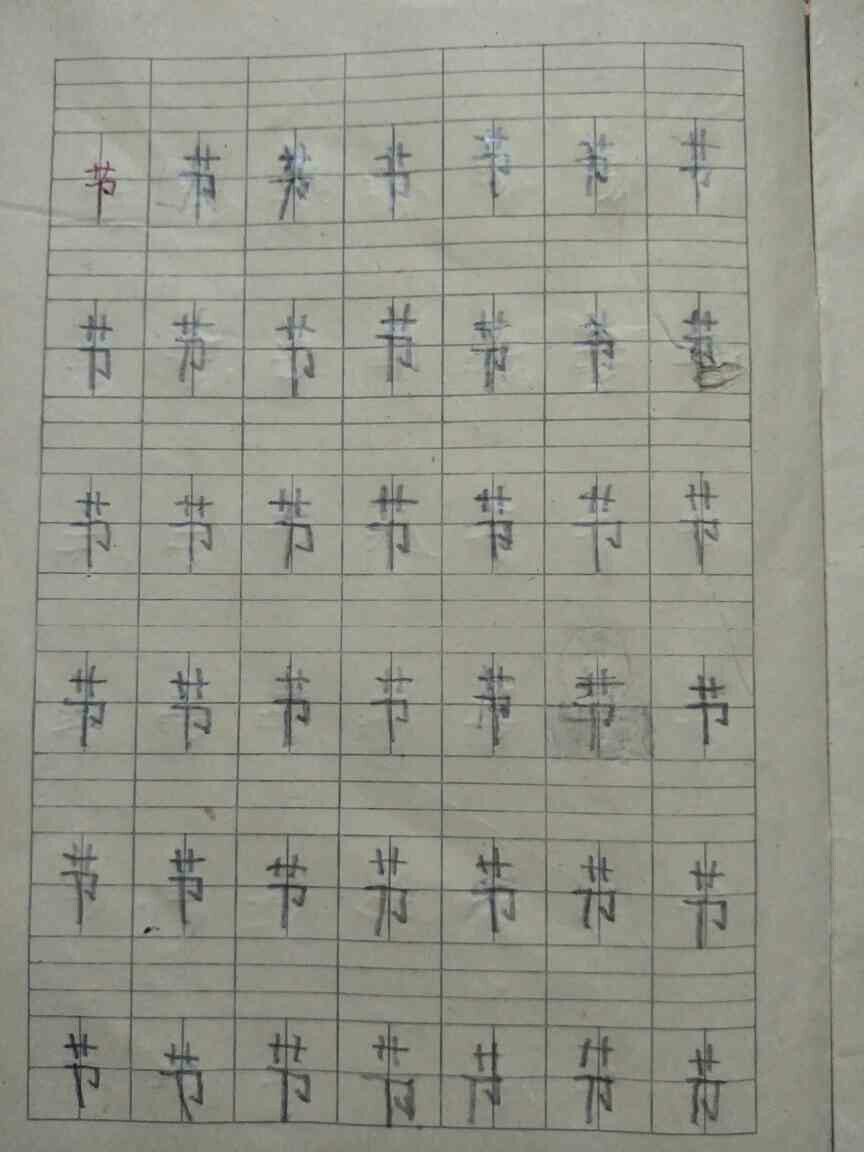 节节节节节节节
节节节节节节节
节节节节节节节
节节节节节节节
节节节节节节节
节节节节节节节